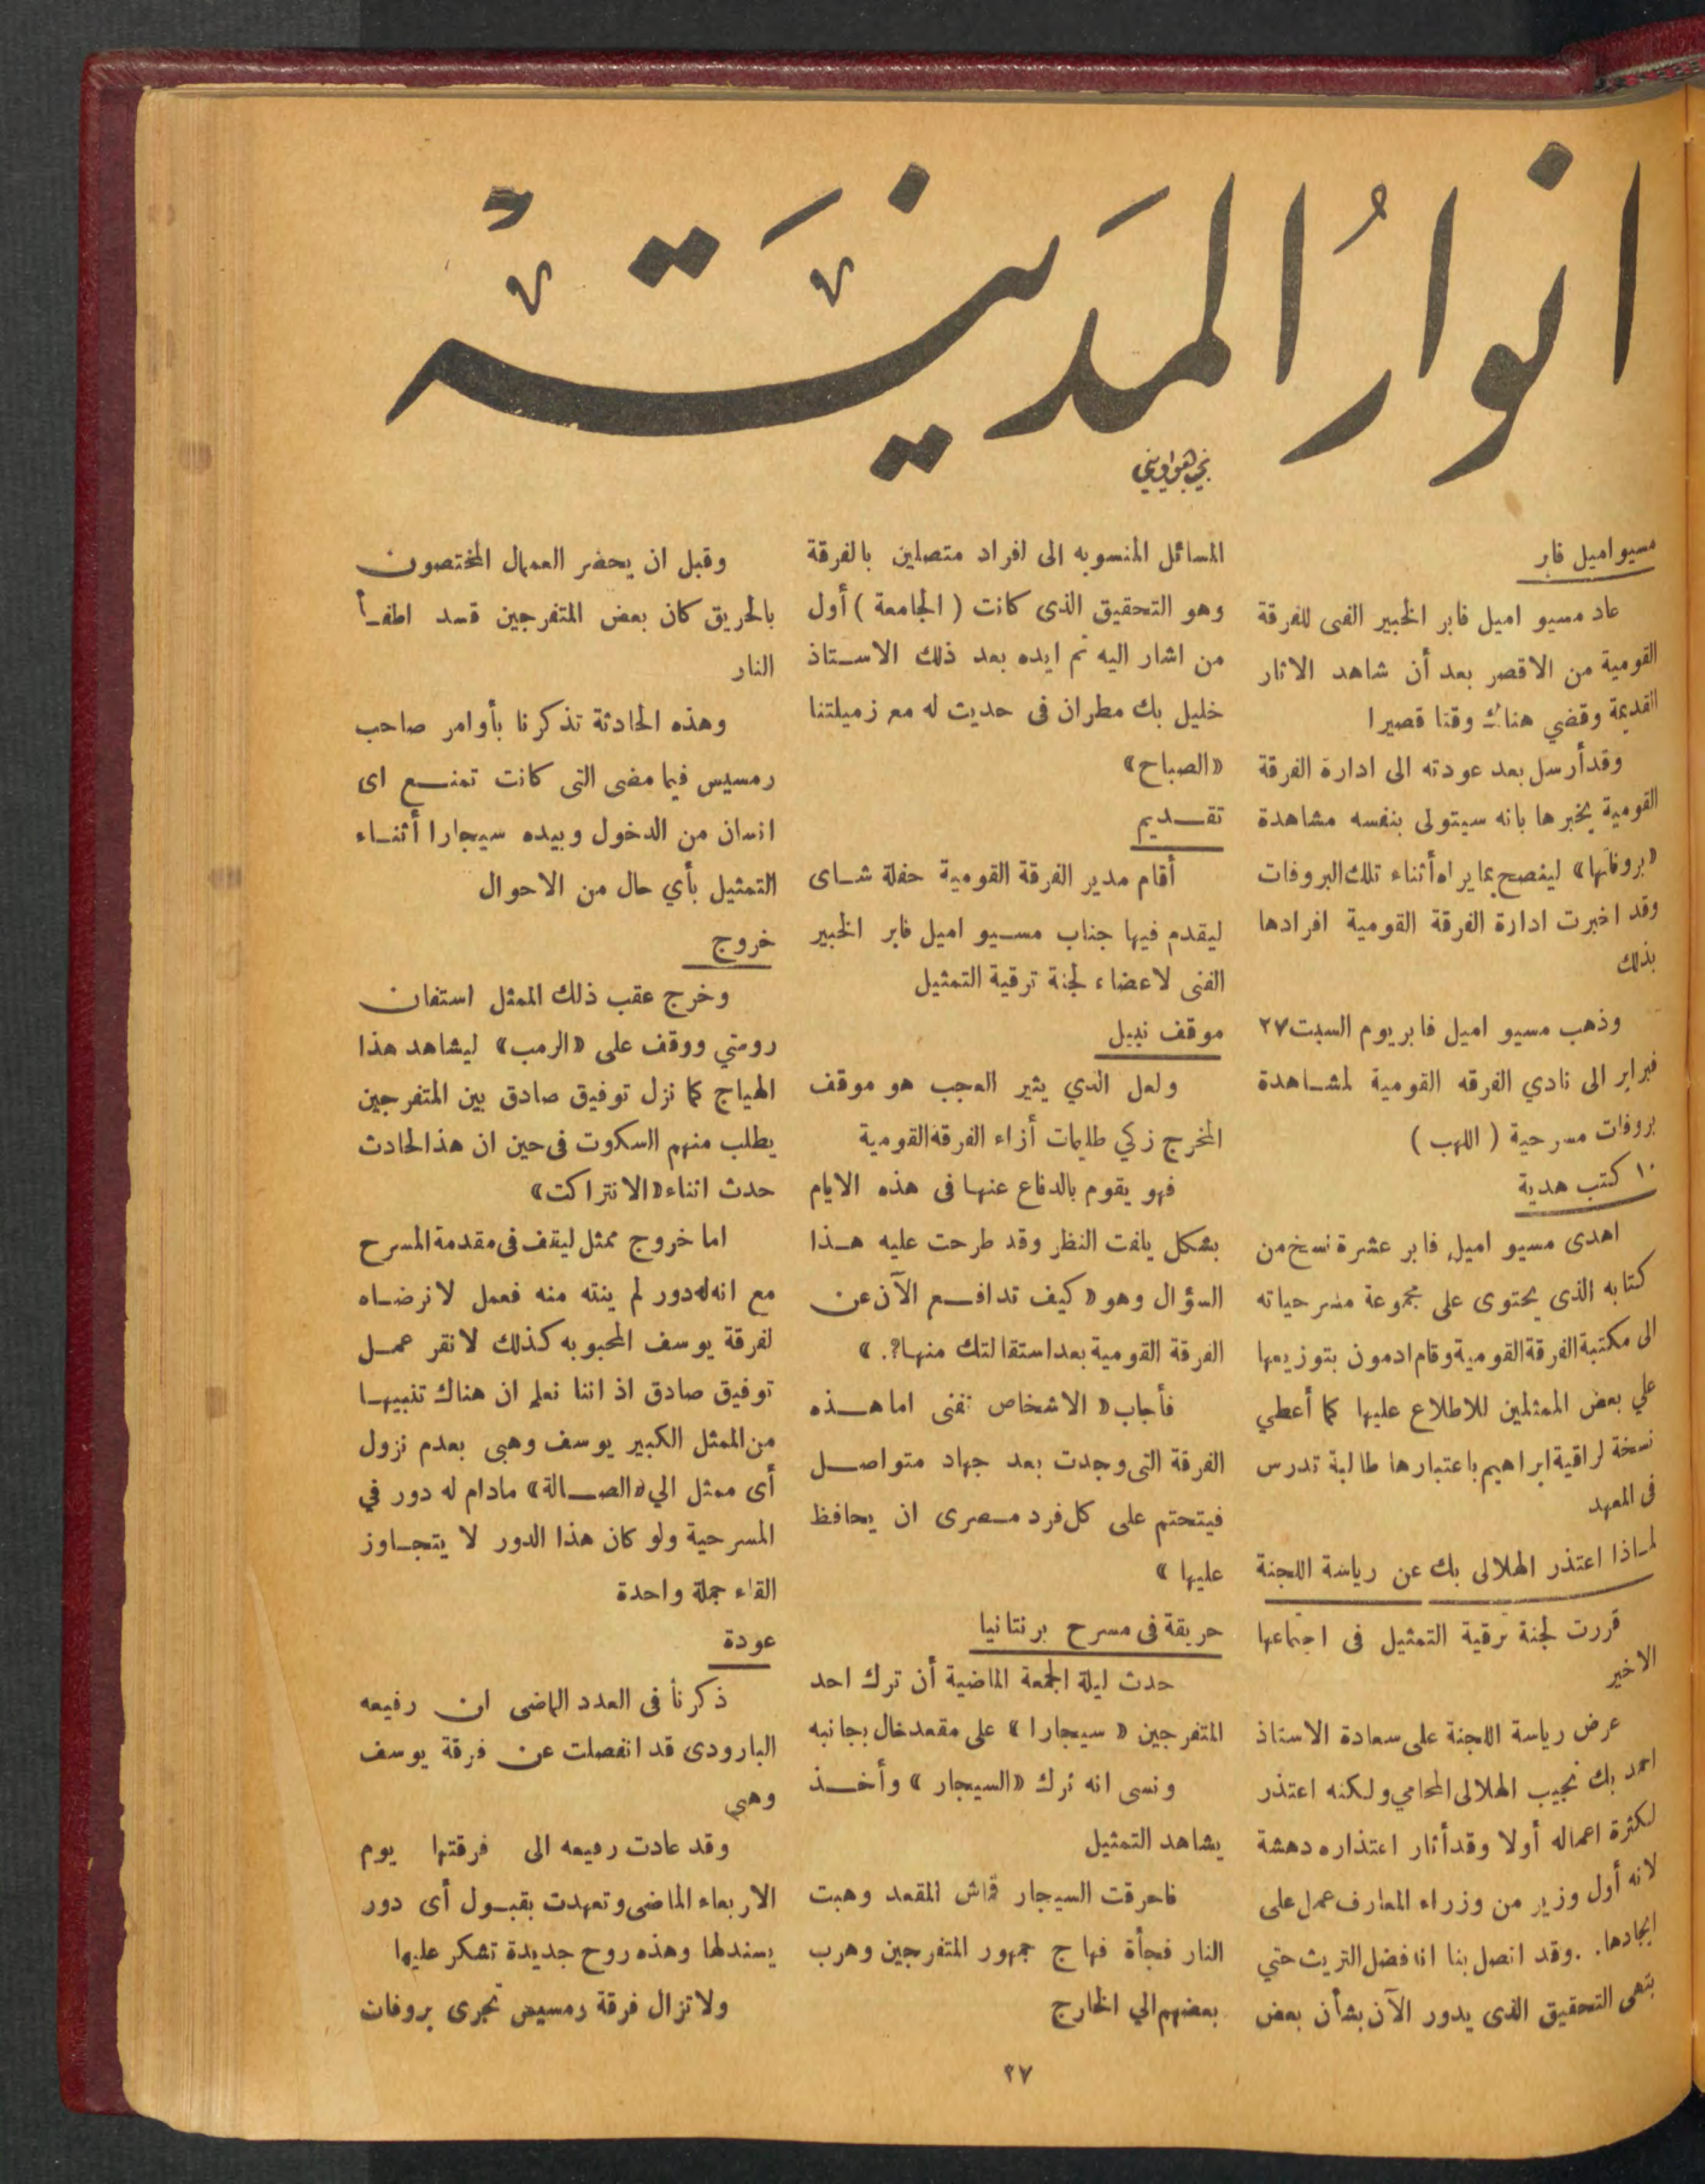 انوار المدينة
نجيب هواويني
مسيو اميل فابر
عاد مسيو اميل فابر الخبير الفنى للفرقة
القومية من الاقصر بعد أن شاهد الاثار
القديمة وقضي هناك وقتا قصيرا
وقد أرسل بعد عودته الى ادارة الفرقة
القومية يخبرها بانه سيتولى بنفسه مشاهدة
«بروفاتها» لينصح بما يراه أثناء تلك البروفات
وقد اخبرت ادارة الفرقة القومية افرادها
بذلك
وذهب مسيو اميل فابر يوم السبت ٢٧
فبراير الى نادي الفرقه القومية لمشاهدة
بروفات مسرحية ( اللهب )
١٠ كتب هدية
اهدى مسيو اميل فابر عشرة نسخ من
كتابه الذى يحتوى على مجموعة مسرحياته
الى مكتبة الفرقة القومية وقام ادمون بتوزيعها
علي بعض الممثلين للاطلاع عليها كما أعطي
نسخة لراقية ابراهيم باعتبارها طالبة تدرس
فى المعهد
لماذا اعتذر الهلالى بك عن رياسة اللجنة
قررت لجنة ترقية التمثيل فى اجتماعها
الاخير
عرض رياسة اللجنة على سعادة الاستاذ
احمد بك نجيب الهلالى المحامي ولكنه اعتذر
لكثرة اعماله أولا وقد أثار اعتذاره دهشة
لانه أول وزير من وزراء المعارف عمل على
ايجادها . . وقد اتصل بنا انه فضل التريث حتي
ينهى التحقيق الذى يدور الآن بشأن بعض
المسائل المنسوبه الى افراد متصلين بالفرقة
وهو التحقيق الذى كانت ( الجامعة ) أول
من اشار اليه ثم ايده بعد ذلك الاستاذ
خليل بك مطران فى حديث له مع زميلتنا
«الصباح»
تقديم
أقام مدير الفرقة القومية حفلة شاى
ليقدم فيها جناب مسيو اميل فابر الخبير
الفنى لاعضاء لجنة ترقية التمثيل
موقف نبيل
ولعل الذي يثير العجب هو موقف
المخرج زكي طليمات أزاء الفرقة القومية
فهو يقوم بالدفاع عنها فى هذه الايام
بشكل يلفت النظر وقد طرحت عليه هذا
السؤال وهو « كيف تدافع الآن عن
الفرقة القومية بعد استقالتك منها؟. »
فأجاب « الاشخاص تفنى اما هذه
الفرقة التى وجدت بعد جهاد متواصل
فيتحتم على كل فرد مصرى ان يحافظ
عليها »
حريقة فى مسرح برنتانيا
حدث ليلة الجمعة الماضية أن ترك احد
المتفرجين « سيجارا » على مقعد خال بجانبه
ونسى انه ترك «السيجار » وأخذ
يشاهد التمثيل
فاحرقت السيجار قماش المقعد وهبت
النار فجأة فهاج جمهور المتفرجين وهرب
بعضهم الي الخارج
وقبل ان يحضر العمال المختصون
بالحريق كان بعض المتفرجين قد اطفأ
النار
وهذه الحادثة تذكرنا بأوامر صاحب
رمسيس فيما مضى التى كانت تمنع اى
انسان من الدخول وبيده سيجارا أثناء
التمثيل بأي حال من الاحوال
خروج
وخرج عقب ذلك الممثل استفان
روستي ووقف على «الرمب» ليشاهد هذا
الهياج كما نزل توفيق صادق بين المتفرجين
يطلب منهم السكوت فى حين ان هذا الحادث
حدث اثناء «الانتراكت»
اما خروج ممثل ليقف فى مقدمة المسرح
مع انه له دور لم ينته منه فعمل لا نرضاه
لفرقة يوسف المحبوبه كذلك لا نقر عمل
توفيق صادق اذ اننا نعلم ان هناك تنبيها
من الممثل الكبير يوسف وهبى بعدم نزول
أى ممثل الي «الصالة» مادام له دور في
المسرحية ولو كان هذا الدور لا يتجاوز
القاء جملة واحدة
عودة
ذكرنا فى العدد الماضى ان رفيعه
البارودى قد انفصلت عن فرقة يوسف
وهبى
وقد عادت رفيعه الى فرقتها يوم
الاربعاء الماضى وتعهدت بقبول أى دور
يسند لها وهذه روح جديدة تشكر عليها
ولا تزال فرقة رمسيس تجرى بروفات
٢٧